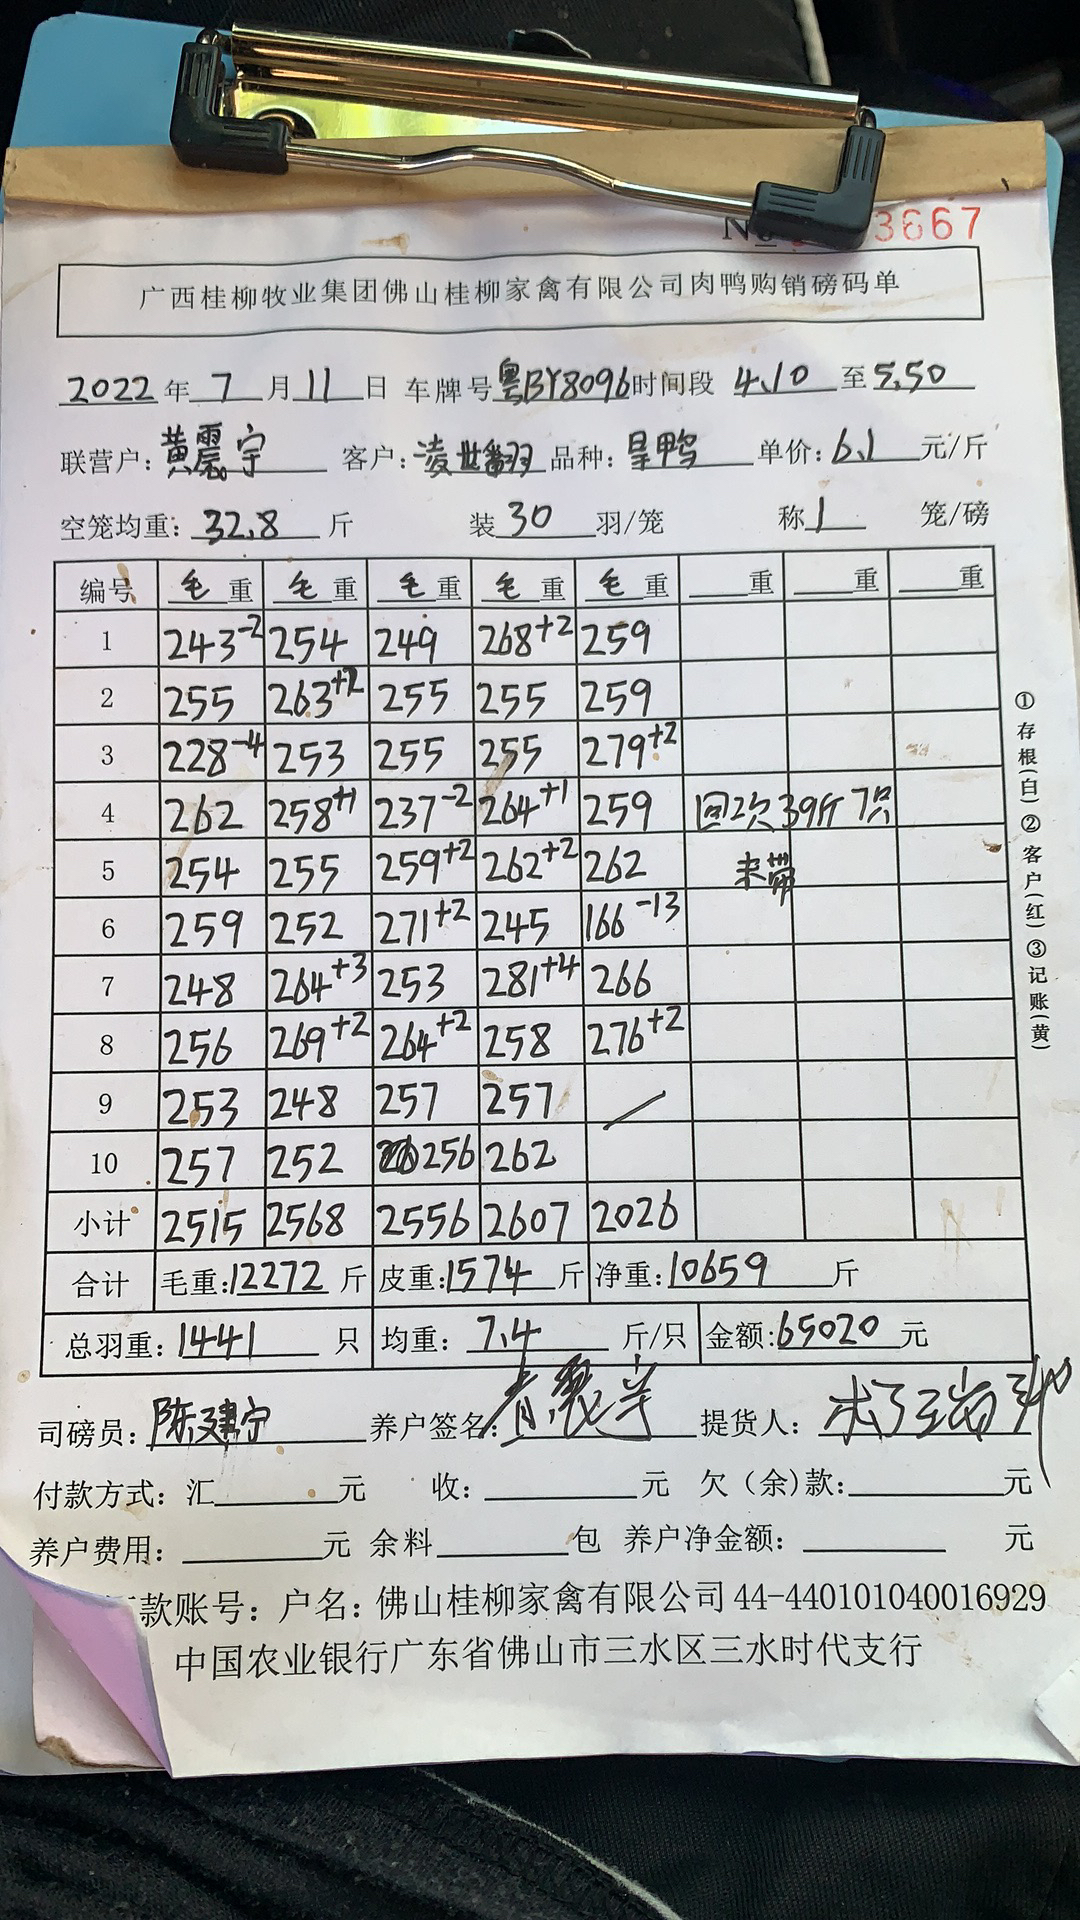 No 3667
广西桂柳牧业集团佛山桂柳家禽有限公司肉鸭购销磅码单
2022年7月11日 车牌号粤BY8096时间段 4.10至5.50
联营户:黄震宇 客户:凌世翻 品种:旱鸭 单价:6.1元/斤
空笼均重:32.8斤 装30羽/笼 称1笼/磅
编号 毛重 毛重 毛重 毛重 毛重 重 重 重
1 243-2 254 249 268+2 259
2 255 263+2 255 255 259
3 228-4 253 255 255 279+2
4 262 258+1 237-2 264+1 259 回次39斤7只
5 254 255 259+2 262+2 262 未带
6 259 252 271+2 245 166-13
7 248 264+3 253 281+4 266
8 256 269+2 264+2 258 276+2
9 253 248 257 257 /
10 257 252 256 262
小计 2515 2568 2556 2607 2026
合计 毛重:12272斤 皮重:1574斤 净重:10659斤
总羽重:1441只 均重:7.4斤/只 金额:65020元
司磅员:陈建宁 养户签名: 提货人:
付款方式:汇 元 收: 元 欠(余)款: 元
养户费用: 元 余料 包 养户净金额: 元
款账号:户名:佛山桂柳家禽有限公司44-440101040016929
中国农业银行广东省佛山市三水区三水时代支行
①存根(白)②客户(红)③记账(黄)